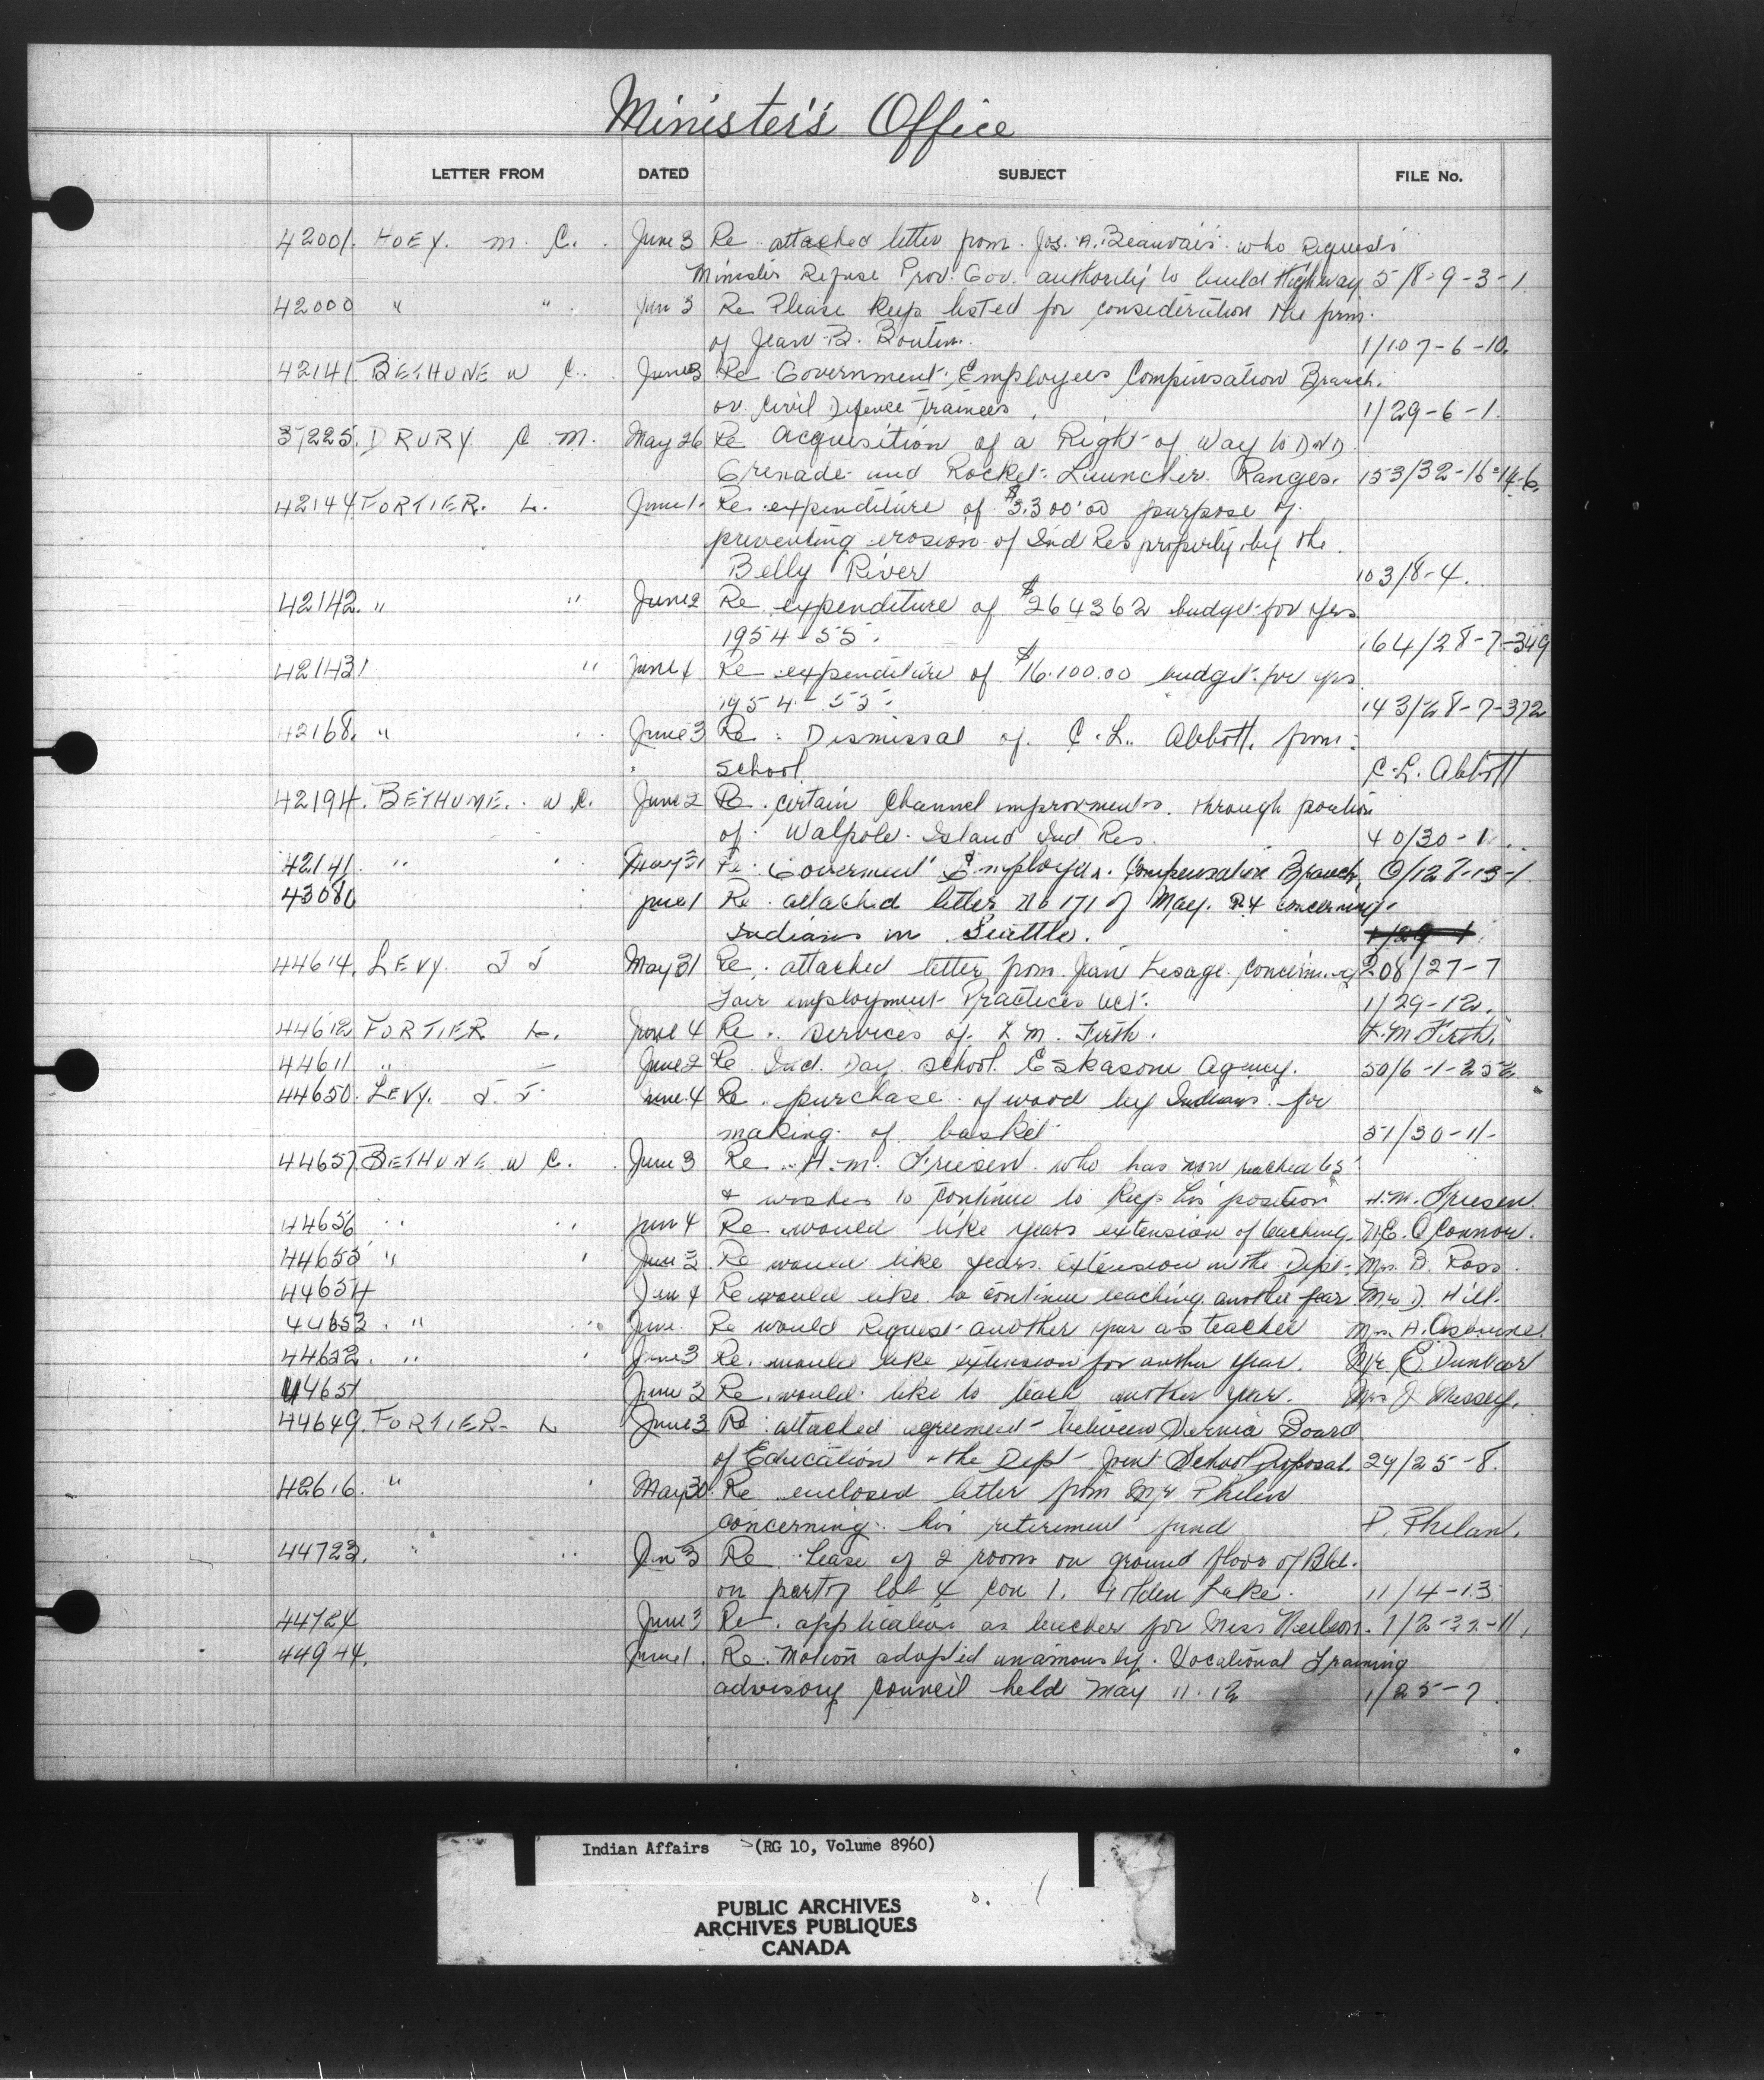 Minister's Office
LETTER FROM DATED SUBJECT FILE No.
42001. HOEY. M. C. June 3 Re attached letter from Jos. A. Beauvais who Requests
Minister Refuse Prov. Gov. authority to build Highway 5/8-9-3-1
42000 " " Jun 3 Re Please keep listed for consideration the
of Jean B. Boutin. 1/107-6-10.
42141 BETHUNE W C. June 3 Re Government Employees Compensation Branch.
on Civil Defence Trainees 1/29-6-1.
37225. DRURY C. M. May 26 Re Acquisition of a Right of Way to DND
Grenade and Rocket Launcher Ranges. 153/32-16-14-6.
42144 FORTIER. L. June 1. Re expenditure of $3,300.00 purpose of
preventing erosion of Ind Res property by the
Belly River 103/8-4.
42142. " " June 2 Re expenditure of $264362 budget for yrs
1954-55. 164/28-7-349
42143 " June 4 Re expenditure of $16.100.00 budget for yrs
1954-55. 143/28-7-372
42168. " June 3 Re: Dismissal of C. L. Abbott. from
school. C. L. Abbott
42194. BETHUNE. W C. June 2 Re. certain Channel improvments. through portion
of Walpole Island Ind Res. 40/30-1
42141 " May 31 Re Goverment Employees. Compensation Branch,
43080 June 1 Re attached letter No 171 of May. 24 concerning
Indians in Seattle. 1/29-1
44614. LEVY J J May 31 Re. attached letter from Jean Lesage. Concerning 208/27-7
Fair employment Practices Act. 1/29-12.
44612 FORTIER L. June 4 Re. services of L M. Firth. L. M. Firth.
44611 " June 2 Re Ind. Day School Eskasoni Agency. 50/6-1-252
44650. LEVY. J. J. June 4 Re. purchase of wood by Indians for
making of basket 51/30-11-
44657 BETHUNE W C. June 3 Re H. M. Friesen who has now reached 65
& wishes to continue to keep his position H. M. Friesen.
44656 " " Jun 4 Re would like years extension of teaching. O'Connor.
44655 " June 2 Re would like years extension in the Dept. Mrs. B. Ross.
44654 Jun 4 Re would like to continue teaching another year. D. Hill.
44653. " June Re would Request another year as teacher Mrs. A. Osborne.
44652. " June 3 Re. would like extension for another year. Mr. E Dunbar
44651 June 2 Re. would like to teach another year. Mrs J Massey.
44649. FORTIER L June 3 Re attached agreement between Board
of Education & the Dept Joint School Proposal. 29/25-8.
42616. " May 30. Re enclosed letter from Mr Phelan
concerning his retirement fund P. Phelan.
44723. " " Jun 3 Re Lease of 2 rooms on ground floor of Bld.
on part of lot 4 con 1. Golden Lake. 11/4-13
44724 June 3 Re. application as teacher for Miss Neilson.
44944. June 1. Re. Motion adopted unamously. Vocational Training
advisory Council held May 11-12 1/25-7.
Indian Affairs (RG 10, Volume 8960)
PUBLIC ARCHIVES
ARCHIVES PUBLIQUES
CANADA